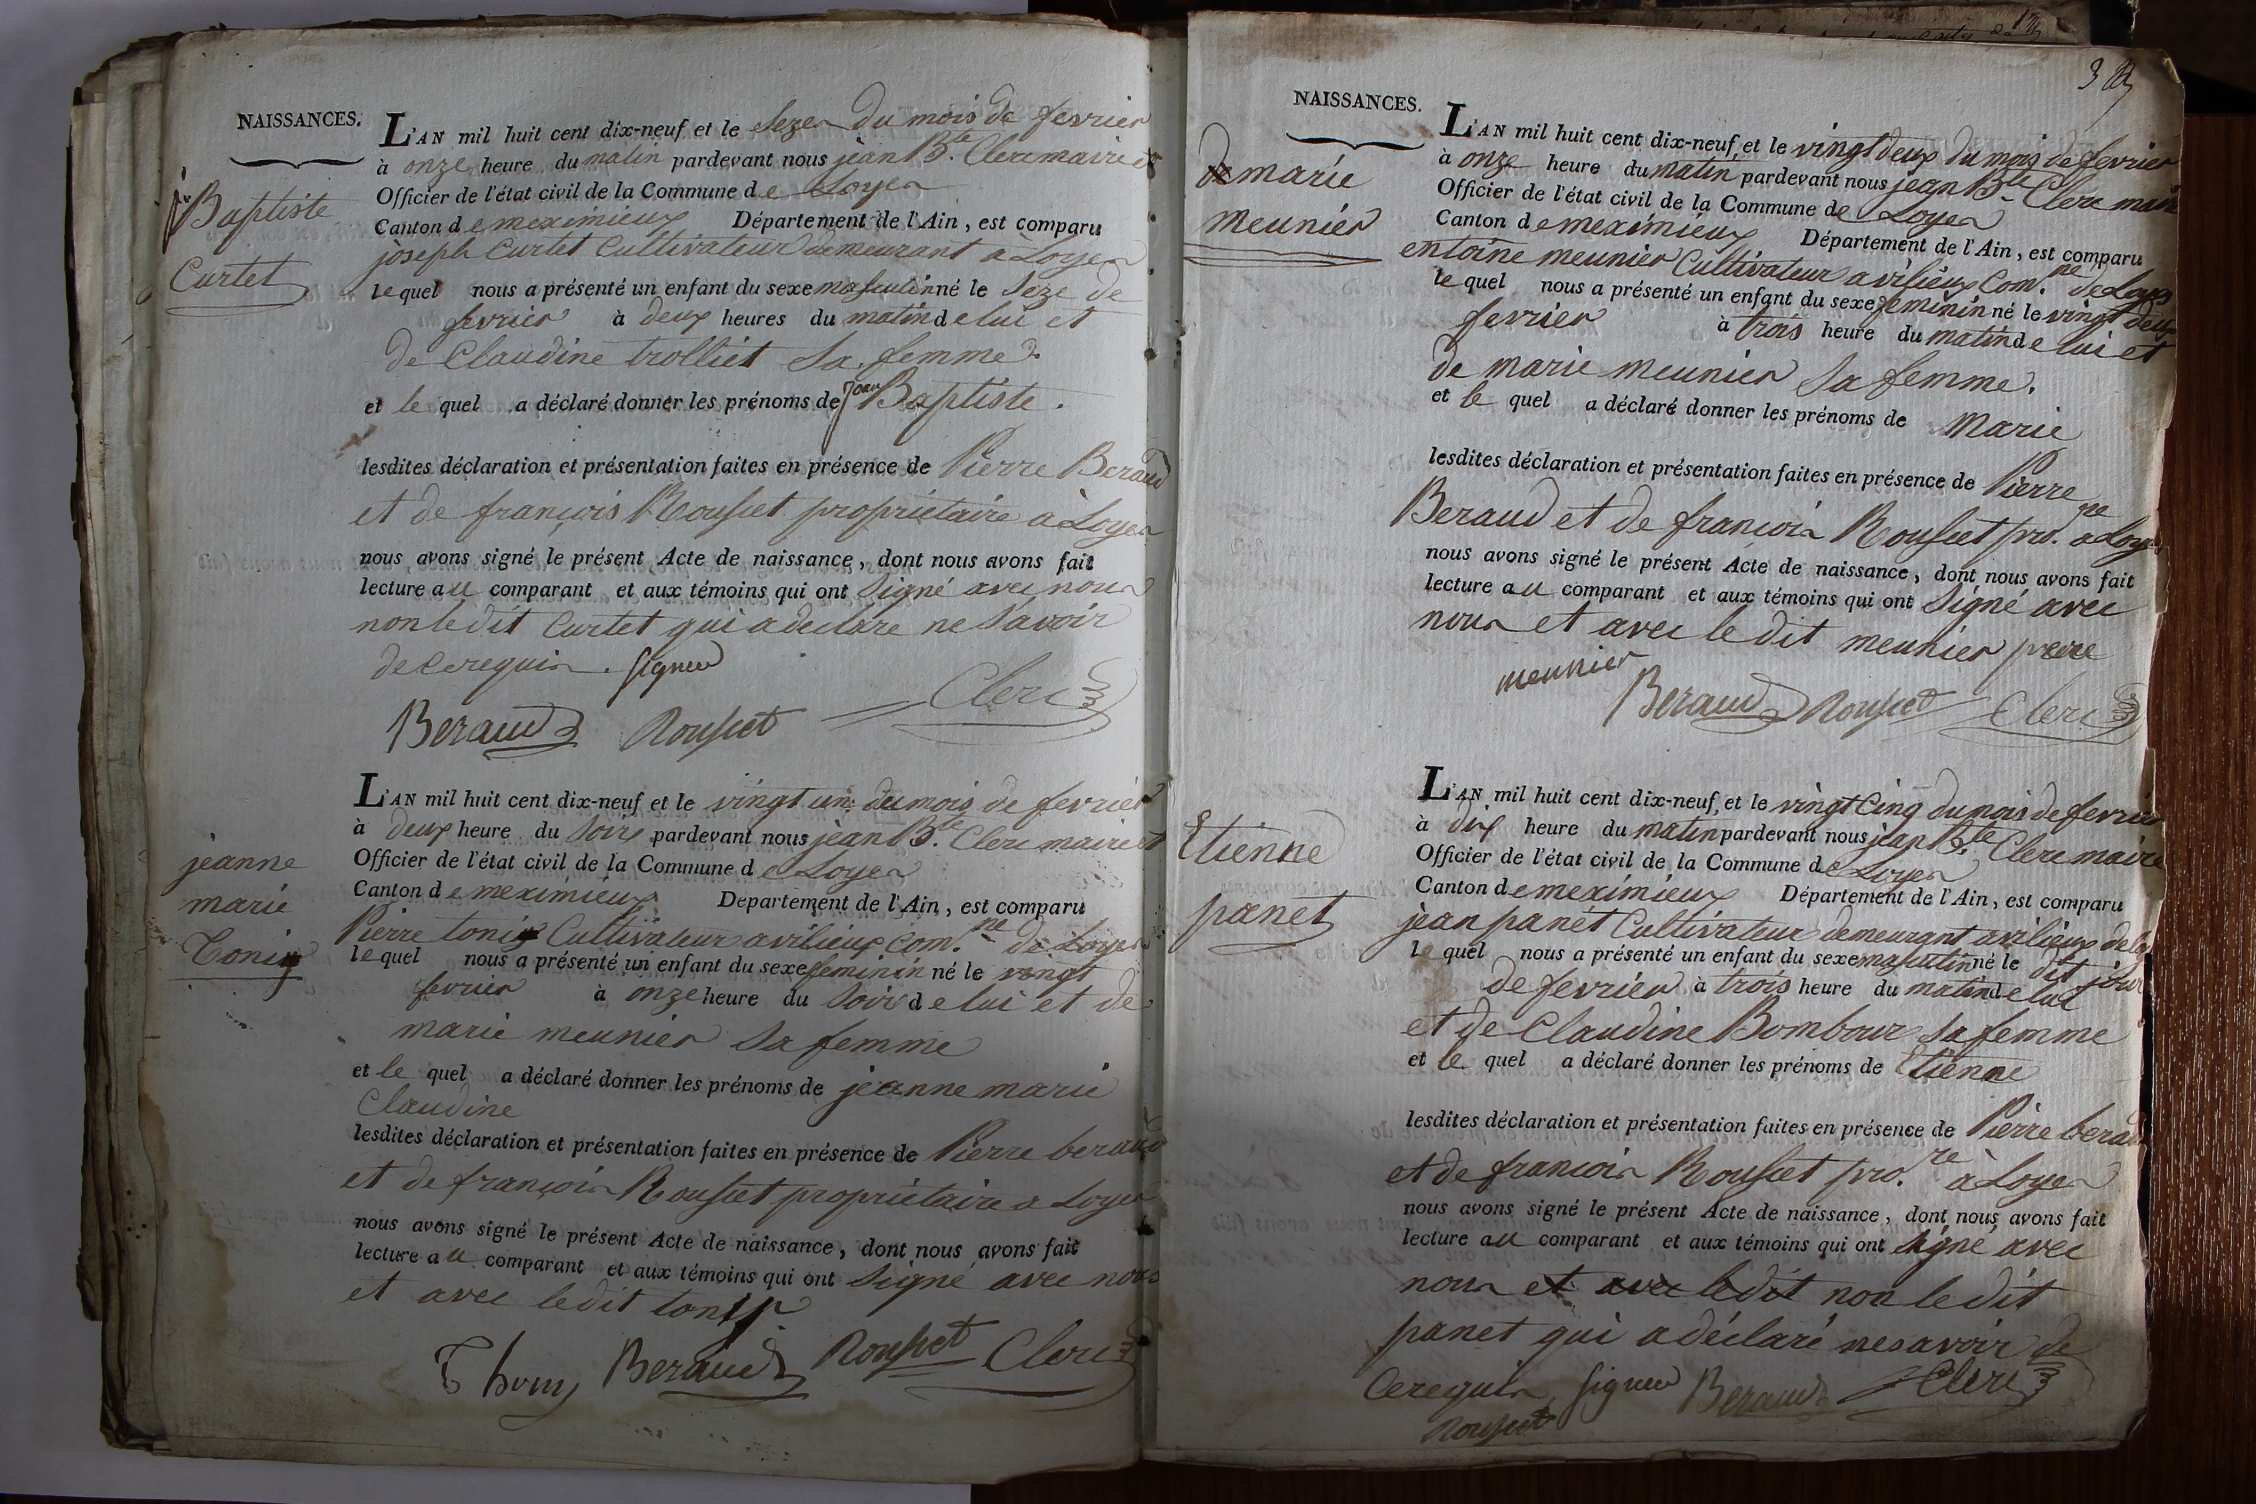 NAISSANCES.
L'AN mil huit cent dix-neuf et le seze du mois de fevrier
à onze heure du matin pardevant nous jean Bte. Clerc maire et
Officier de l'état civil de la Commune de Loyes
Canton de meximieux Département de l'Ain, est comparu
joseph Curtet Cultivateur demeurant à Loyes
le quel nous a présenté un enfant du sexe masculin né le seze de
fevrier à deux heures du matin de lui et
de Claudine trolliet sa femme
et le quel a déclaré donner les prénoms de jean Baptiste.
lesdites déclaration et présentation faites en présence de Pierre Beraud
et de françois Rousset propriétaire à Loyes
nous avons signé le présent Acte de naissance, dont nous avons fait
lecture au comparant et aux témoins qui ont signé avec nous
non le dit Curtet qui a déclare ne savoir
de ce requis. signer
Beraud Rousset Clerc
jn
Baptiste
Curtet
L'AN mil huit cent dix-neuf et le vingt un du mois de fevrier
à deux heure du soir pardevant nous jean Bte. Clerc maire et
Officier de l'état civil de la Commune de Loyes
Canton de meximieux Département de l'Ain, est comparu
Pierre toniy Cultivateur a vilieux Com.ne de Loyes
le quel nous a présenté un enfant du sexe feminin né le vingt
fevrier à onze heure du soir de lui et de
marie meunier sa femme
et le quel a déclaré donner les prénoms de jeanne marie
Claudine
lesdites déclaration et présentation faites en présence de Pierre beraud
et de françois Rousset propriétaire a Loyes
nous avons signé le présent Acte de naissance, dont nous avons fait
lecture au comparant et aux témoins qui ont signé avec nous
et avec le dit
Beraud Rousset Clerc
jeanne
marie
Toniy
3
NAISSANCES.
L'AN mil huit cent dix-neuf et le vingt deux du mois de fevrier
à onze heure du matin pardevant nous jean Bte. Clerc maire
Officier de l'état civil de la Commune de Loyes
Canton de meximieux Département de l'Ain, est comparu
entoine meunier Cultivateur a vilieux Com.ne de Loyes
le quel nous a présenté un enfant du sexe feminin né le vingt deux
fevrier à trois heure du matin de lui et
de marie meunier sa femme.
et le quel a déclaré donner les prénoms de Marie
lesdites déclaration et présentation faites en présence de Pierre
Beraud et de francois Rousset pro.re a Loyes
nous avons signé le présent Acte de naissance, dont nous avons fait
lecture au comparant et aux témoins qui ont signé avec
nous et avec le dit meunier pere
meunier
Beraud Rousset Clerc
de marie
meunier
L'AN mil huit cent dix-neuf, et le vingt Cinq du mois de fevrier
à dix heure du matin pardevant nous jean Bte. Clerc maire
Officier de l'état civil de la Commune de Loyes
Canton de meximieux Département de l'Ain, est comparu
jean panet Cultivateur demeurant a vilieux
le quel nous a présenté un enfant du sexe masculin né le dit jour
de fevrier à trois heure du matin de lui
et de Claudine Bombour sa femme
et le quel a déclaré donner les prénoms de Etienne
lesdites déclaration et présentation faites en présence de Pierre beraud
et de francois Rousset pro.re à Loyes
nous avons signé le présent Acte de naissance, dont nous avons fait
lecture au comparant et aux témoins qui ont signé avec
nous et avec le dit non le dit
panet qui a déclaré ne savoir de
Ce requis signer Beraud Clerc
Rousset
Etienne
panet